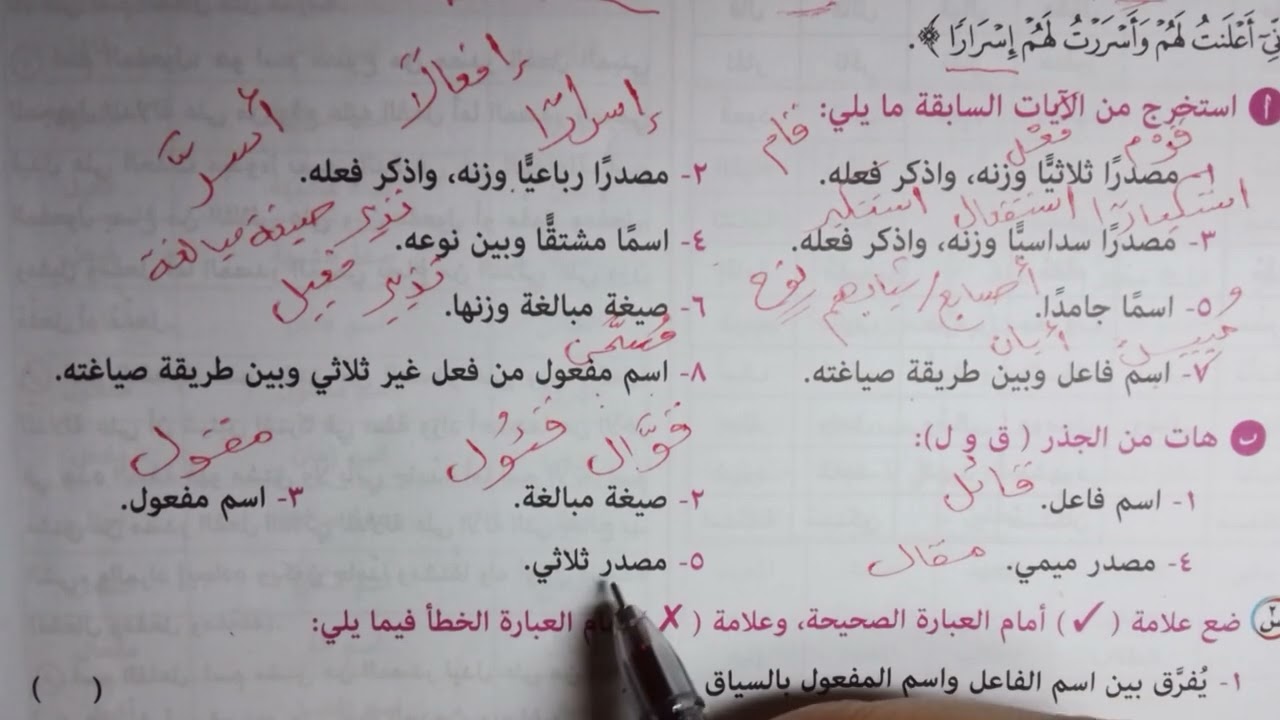 نِّيٓ أَعۡلَنتُ لَهُمۡ وَأَسۡرَرۡتُ لَهُمۡ إِسۡرَارٗا ﴾.
إفعالًا
أ استخرج من الآيات السابقة ما يلي:
إسرارًا أسرّ
قَوْم فَعْل قام
١- مصدرًا ثلاثيًّا وزنه، واذكر فعله. ٢- مصدرًا رباعيًّا وزنه، واذكر فعله.
استكبارًا استفعال استكبر نذير صيغة مبالغة
٣- مصدرًا سداسيًّا وزنه، واذكر فعله. ٤- اسمًا مشتقًّا وبين نوعه.
أصابع / ثيابهم نوح نذير فعيل
٥- اسمًا جامدًا. ٦- صيغة مبالغة وزنها.
مبين أبان مُسَمًّى
٧- اسم فاعل وبين طريقة صياغته. ٨- اسم مفعول من فعل غير ثلاثي وبين طريقة صياغته.
ب هات من الجذر ( ق و ل ):
قائل قوَّال قَئُول مقول
١- اسم فاعل. ٢- صيغة مبالغة. ٣- اسم مفعول.
٤- مصدر ميمي. مقال ٥- مصدر ثلاثي.
س٢ ضع علامة ( ✓ ) أمام العبارة الصحيحة، وعلامة ( ✗ ) أمام العبارة الخطأ فيما يلي:
١- يُفرَّق بين اسم الفاعل واسم المفعول بالسياق ( )